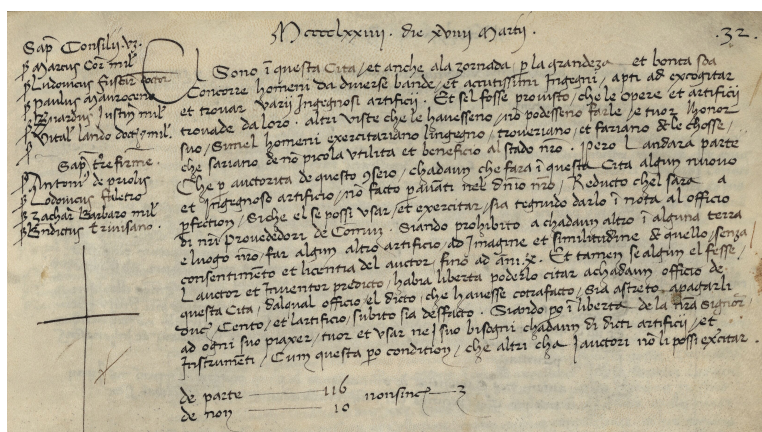 Mcccclxxiiii . die xviiii Martii .
.32.
Sap̃ Consilii.vz.
ꝑ Marcus Cor mil
ꝑ Ludovicus fuscar̃ doctor
ꝑ paulus Maurocenº
ꝑ Bñardus Justiñ mil
ꝑ Vital lando doct⁊ mil.
ꝑ
Sap̃ terre firme.
ꝑ Antoni de priolis
ꝑ Lodovicus faletro
ꝑ Zachar̃ Barbaro mil
ꝑ Bñdictus trivisano.
El Sono ĩ questa Cita / et anche ala zornada ꝑ la grandeza et bonta soa
Concorre homeni da diverse bande / et acutissimi Ingegni, apti ad excogitar
et trovar varii Ingegnosi artificii. Et sel fosse provisto, che le opere et artificii
trovade da loro. altri viste che le havesseno / nõ podesseno farle / e tuor l honor
suo / Simel homeni exercitariano lingegno / troveriano / et fariano de le chosse /
che sariano de nõ picola utilita et beneficio al stado nr̃o. Pero L andara parte
Che ꝑ auctorita de questo 9seio / chadaun che fara ĩ questa Cita algun nuovo
et Ingegnoso artificio / nõ facto ꝑ avãti nel dñio nr̃o / Reducto chel sara a
ꝑfection / Siche el se possi usar / et exercitar / sia tegnudo darlo ĩ nota al officio
di nr̃i Provededori de Comuñ. Siando prohibito a chadaun altro ĩ alguna terra
e luogo nr̃o / far algun altro artificio / ad Imagine et similitudine de quello / senza
consentimẽto et licentia del auctor / fino ad ãni .x. Et tamen se algun el fesse /
L auctor et Inventor predicto / habia liberta poderlo citar a chadaun officio de
questa Cita / dal qual officio el dicto / che havesse cõtrafacto / Sia astreto apagarli
duc̃ Cento / et l artificio / subito sia desfacto. Siando ꝑo ĩ liberta de la nr̃a Signiorĩa
ad ogni suo piaxer / tuor et usar nei suo bisogni chadaun di dicti artificij / et
Instrumẽti / Cum questa ꝑo condition / che altri cha i auctori nõ li possi exercitar.
de parte 116 nonsinc̃ 3
de non 10